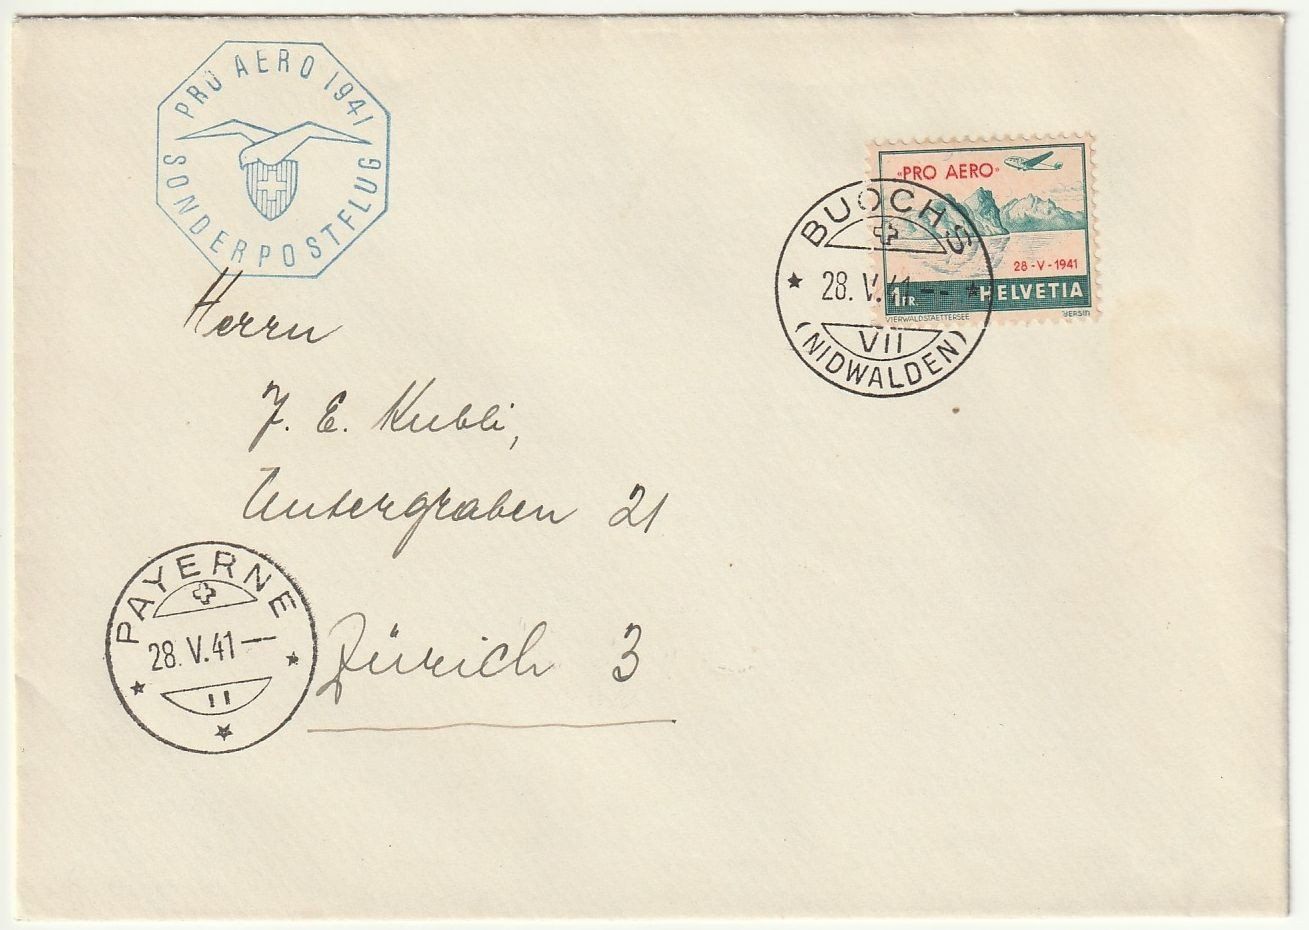 PRO AERO 1941
SONDERPOSTFLUG
«PRO AERO»
28-V-1941
1 FR HELVETIA
VIERWALDSTAETTERSEE BERSIN
BUOCHS
28. V. 41--
VII
(NIDWALDEN)
Herrn
J. E. Kubli,
Untergraben 21
Zürich 3
PAYERNE
28. V. 41—
II